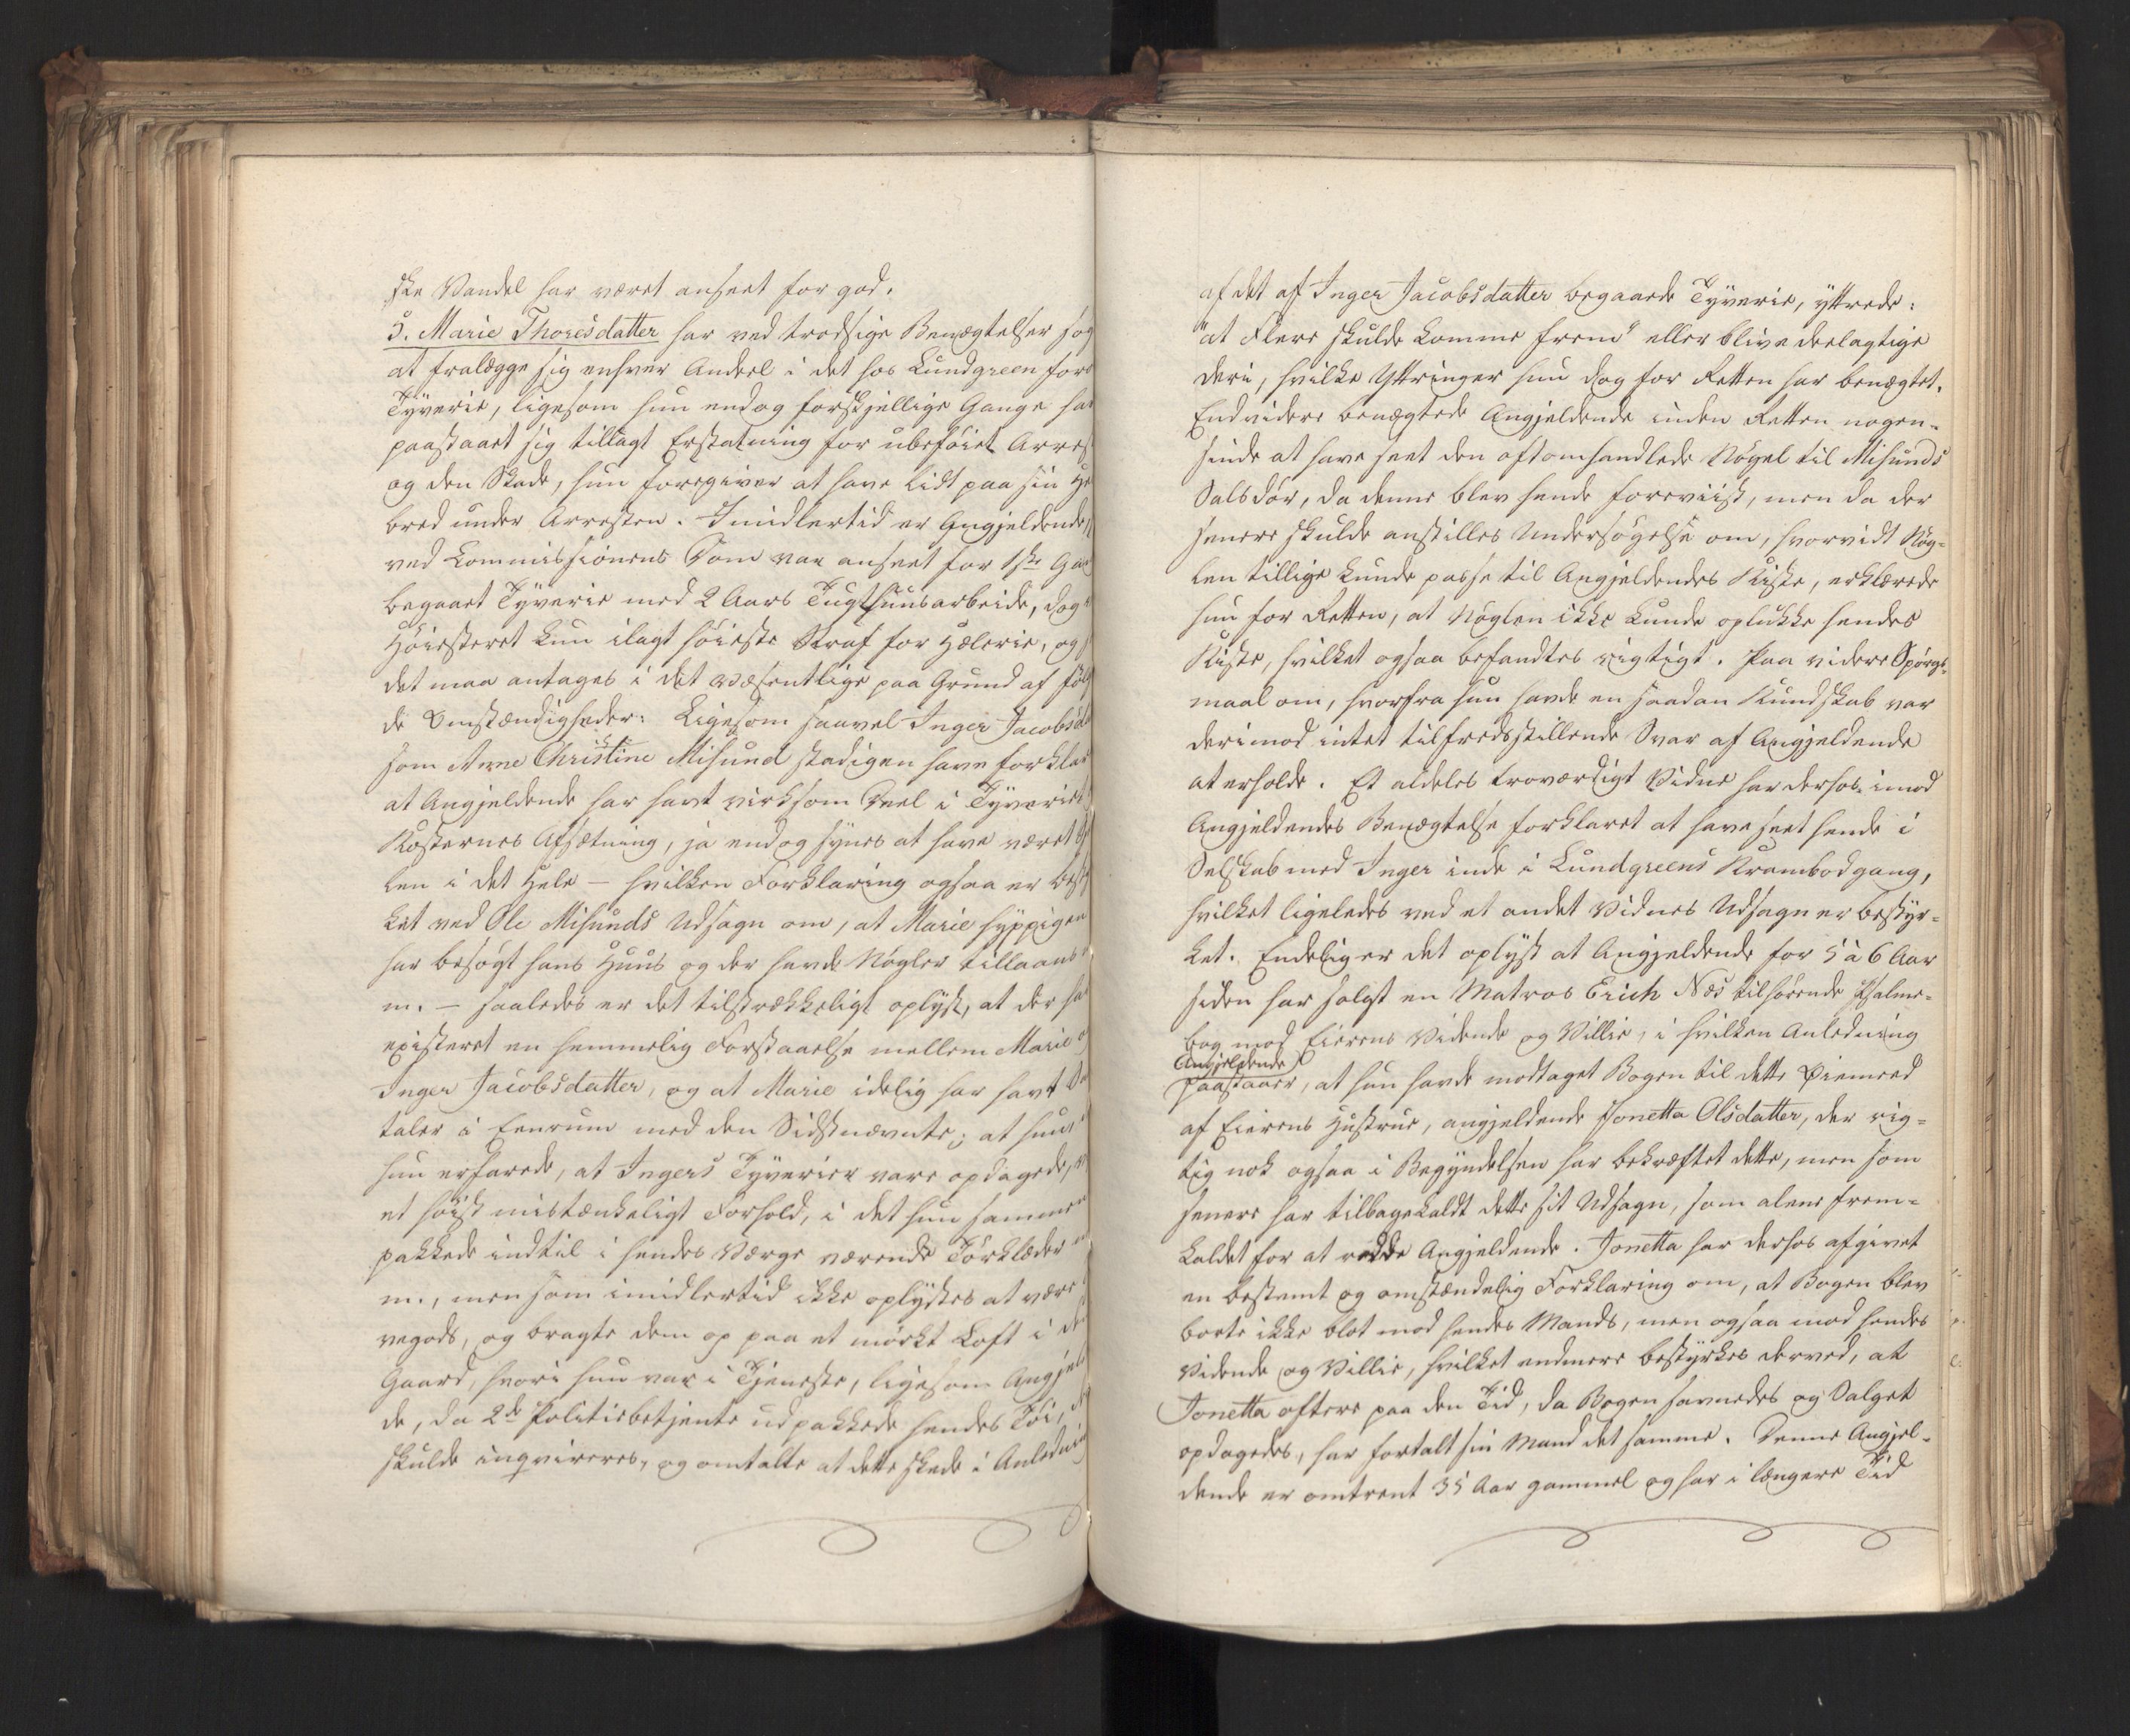 ske Vandel har været anseet for god.
5. Marie Thoresdatter har ved trodsige Benægtelser søg
at fralægge sig enhver Andeel i det hos Lundgreen for
Tyverie, ligesom hun endog forskjellige Gange ha
paastaaet sig tillagt Erstatning for ubeføiet Arres
og den Skade, hun foregiver at have lidt paa sin He
bred under Arresten. Imidlertid er Angjeldende
ved Commissionens Dom var anseet for 1ste Ga
begaaet Tyverie med 2 Aars Tugthuusarbeide, dog
Høiesteret kun ilagt høieste Straf for Hælerie, og
det maa antages i det væsentlige paa Grund afføl
de Omstændigheder: Ligesom saavel Inger Jacobsda
som Anne Christine Misund stadigen have forklar
at Angjeldende har havt virksom Deel i Tyveriet
Kosternes Afsætning, ja endog synes at have været
len i det Hele – hvilken Forklaring ogsaa er besty
ket ved Ole Misunds Udsagn om, at Marie hyppigen
har besøgt hans Huus og der havde Nøgler tillaans
m. – saaledes er det tilstrækkeligt oplyst, at der ha
existeret en hemmelig Forstaaelse mellem Marie o
Inger Jacobsdatter, og at Marie idelig har havt Sa
taler i Eenrum med den Sidstnævnte; at hun
hun erfarede, at Ingers Tyverier vare opdagede,
et høist mistænkeligt Forhold, i det hun sammen
pakkede indtil i hendes Værge værende Tørklæder
m., men som imidlertid ikke oplystes at være
vegods, og bragte dem op paa et mørkt Loft i de
Gaard, hvori hun var i Tjeneste, ligesom Angjel
de, da 2de Politiebetjente udpakkede hendes Tøi,
skulde inqvireres, og omtalte at dette skede i Anlednin
af det af Inger Jacobsdatter begaaede Tyverie, yttrede:
"at Flere skulde komme frem" eller blive deelagtige
deri, hvilke Yttringer hun dog for Retten har benægtet.
Endvidere benægtede Angjeldende inden Retten nogen-
sinde at have seet den oftomhandlede Nøgel til Misunds
Salsdør, da denne blev hende foreviist, men da der
senere skulde anstilles Undersøgelse om, hvorvidt Nøg-
len tillige kunde passe til Angjeldendes Kiste, erklærede
hun for Retten, at Nøglen ikke kunde oplukke hendes
Kiste, hvilket ogsaa befandtes rigtigt. Paa videre Spørgs-
maal om, hvorfra hun havde en saadan Kundskab var
derimod intet tilfredsstillende Svar af Angjeldende
at erholde. Et aldeles troværdigt Vidne har derhos imod
Angjeldendes Benægtelse forklaret at have seet hende i
Selskab med Inger inde i Lundgreens Krambodgang,
hvilket ligeledes ved et andet Vidnes Udsagn er bestyr-
ket. Endelig er det oplyst at Angjeldende for 5 à 6 Aar
siden har solgt en Matros Erich Næs tilhørende Psalme-
bog mod Eierens Vidende og Villie, i hvilken Anledning
Angjeldende
paastaaer, at hun havde modtaget Bogen til dette Øiemeed
af Eierens Hustrue, angjeldende Jonetta Olsdatter, der rig-
tig nok ogsaa i Begyndelsen har bekræftet dette, men som
senere har tilbagekaldt dette sit Udsagn, som alene frem-
kaldet for at redde Angjeldende. Jonetta har derhos afgivet
en bestemt og omstændelig Forklaring om, at Bogen blev
borte ikke blot mod hendes Mands, men ogsaa mod hendes
Vidende og Villie, hvilket endmere bestyrkes derved, at
Jonetta oftere paa den Tid, da Bogen savnedes og Salget
opdagedes, har fortalt sin Mand det samme. Denne Angjel-
dende er omtrent 35 Aar gammel og har i længere Tid